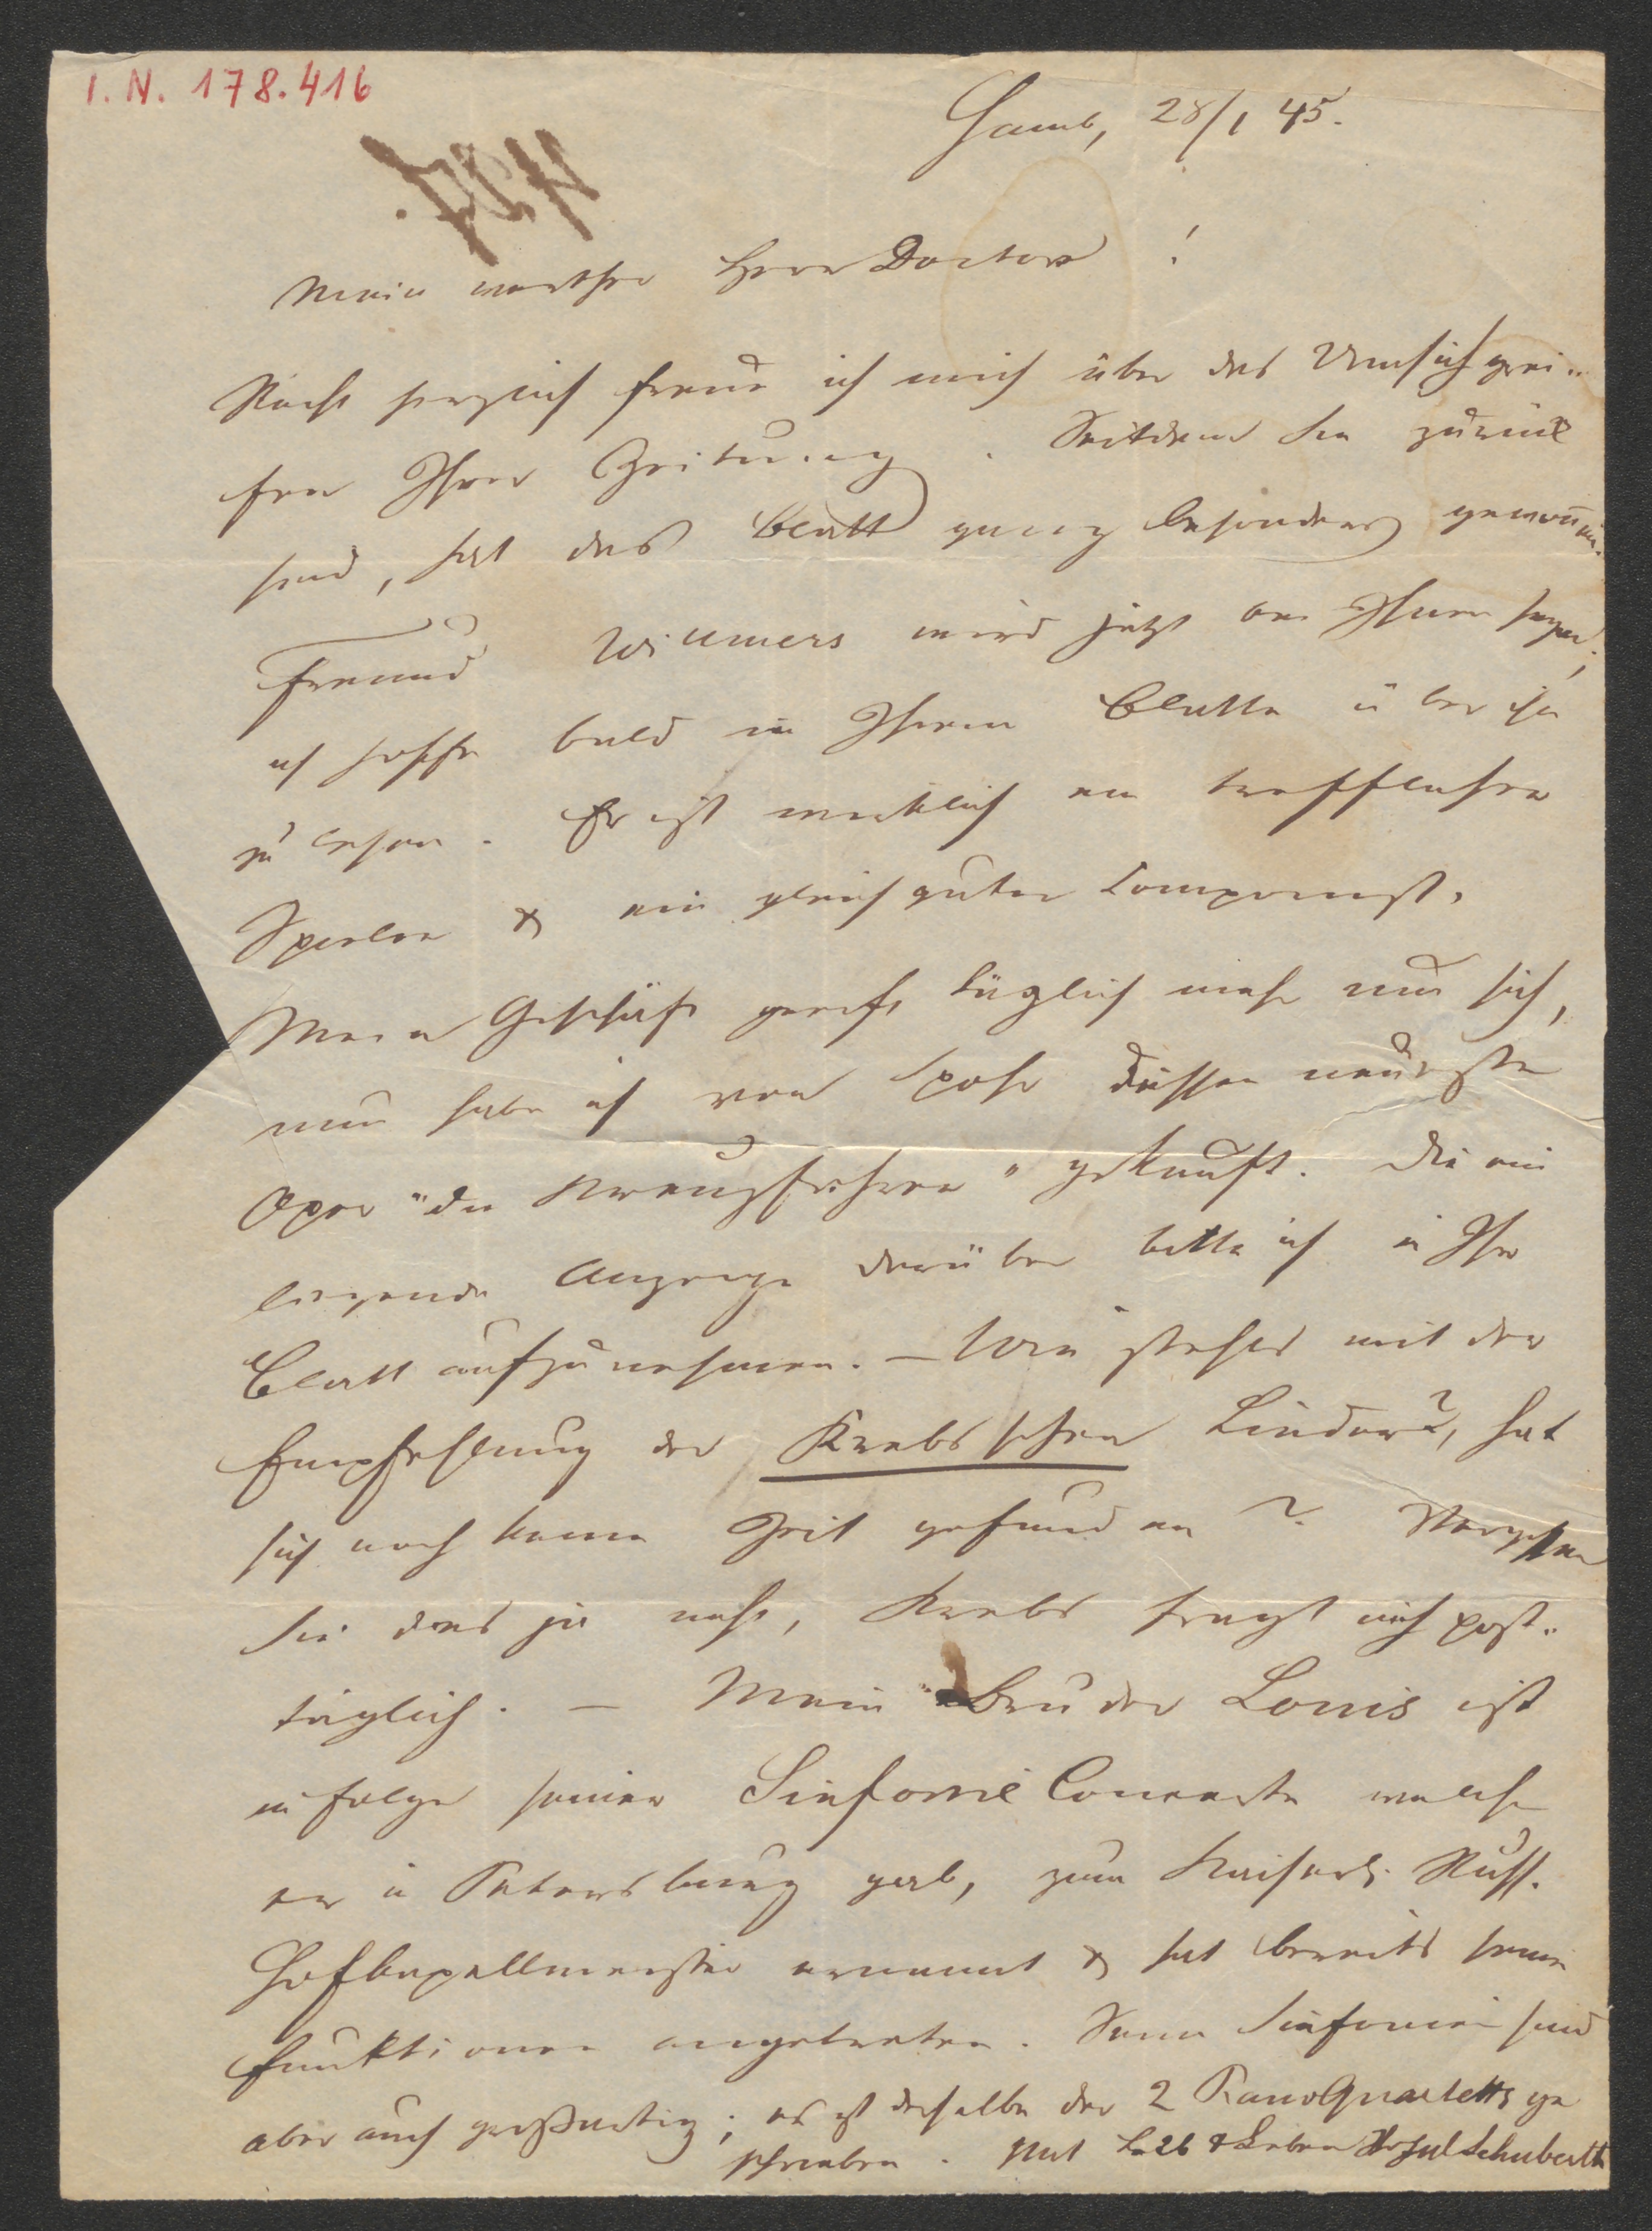 I. N. 178.416
Hamb, 28/1 45.
Mein werther Herr Doctor !
Recht herzlich freue ich mich über das Umsichgrei-
fen Ihrer Zeitung. Seitdem Sie zurück
sind, hat das Blatt ganz besonders gewonnen.
Freund Willmers wird jetzt bei Ihnen seyn;
ich hoffe bald in Ihrem Blatte über ihn
zu lesen. Er ist wirklich ein trefflicher
Spieler & ein gleich guter Componist.
Mein Geschäft greift täglich mehr um sich,
nun habe ich von Spohr dessen neueste
Oper "die Kreuzfahrer" gekauft. Die ein
liegende Anzeige darüber bitte ich in Ihr
Blatt aufzunehmen. – Wie stehts mit der
Empfehlung der Krebsschen Lieder?, hat
sich noch keine Zeit gefunden? Vergessen
Sie das ja nicht, Krebs fragt mich post-
täglich. – Mein Bruder Louis ist
in Folge seiner Sinfonie Concerte welche
er in Petersburg gab, zum Kaiserl. Russ.
Hofkapellmeister ernannt & hat bereits seine
Funktionen angetreten. Seine Sinfonien sind
aber auch großartig; es ist derselbe der 2 PianoQuartetts ge
schrieben. Mit Lieb & Leben Ihr Jul Schuberth